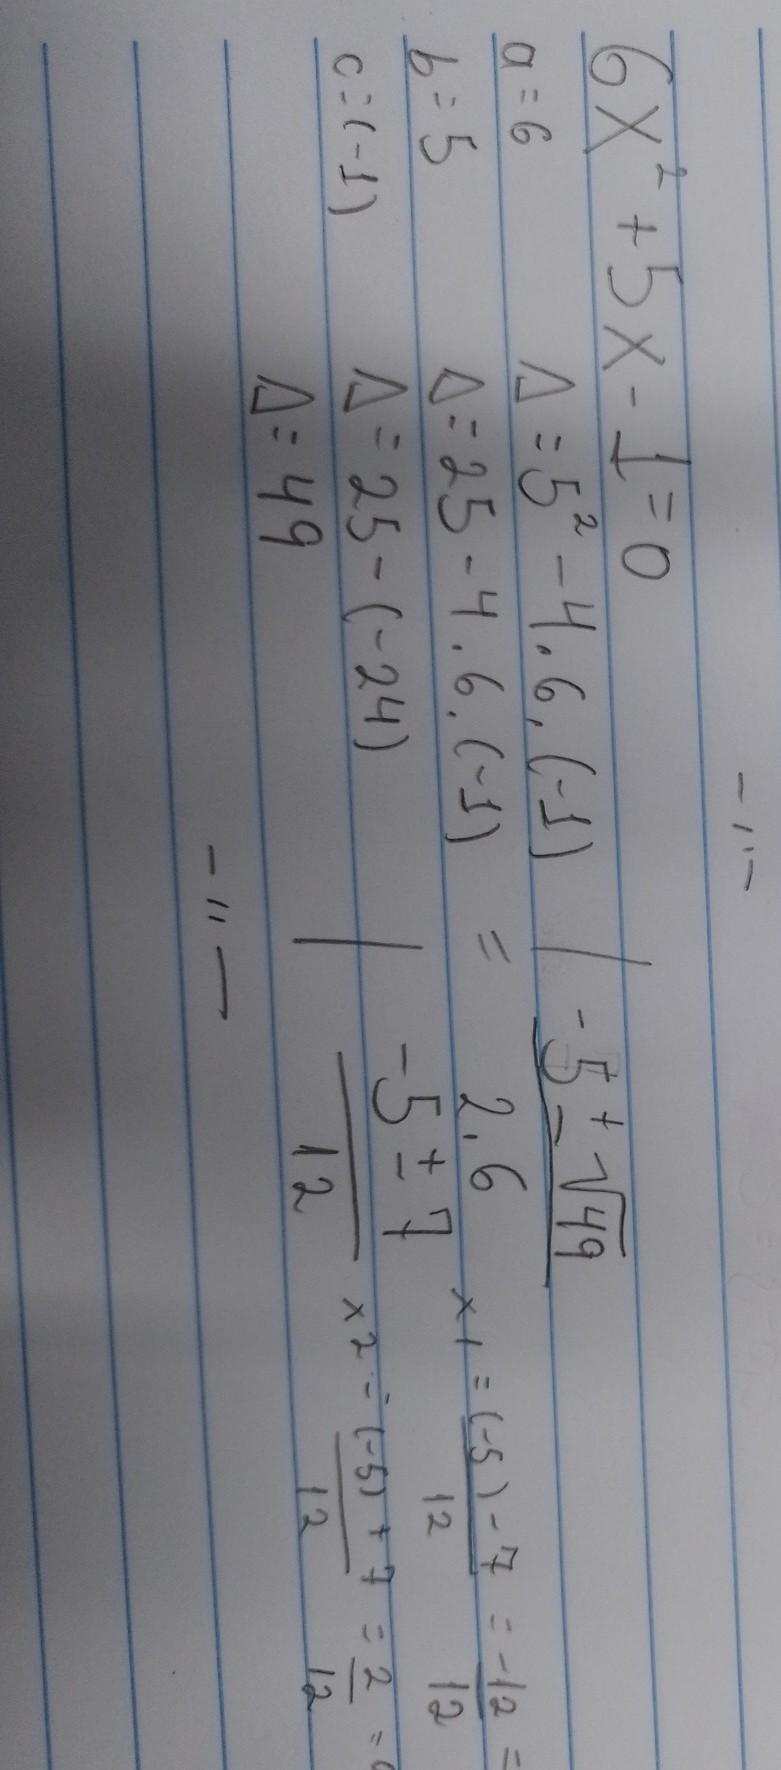 -"-
6x² + 5x - 1 = 0
a = 6
b = 5
c = (-1)
Δ = 5² - 4 . 6 . (-1)
Δ = 25 - 4 . 6 . (-1)
Δ = 25 - (-24)
Δ = 49
-5 ± √49
= 2.6
-5 ± 7
12
x1 = (-5) - 7 = -12 =
12 12
x2 = (-5) + 7 = 2 =
12 12
-"-